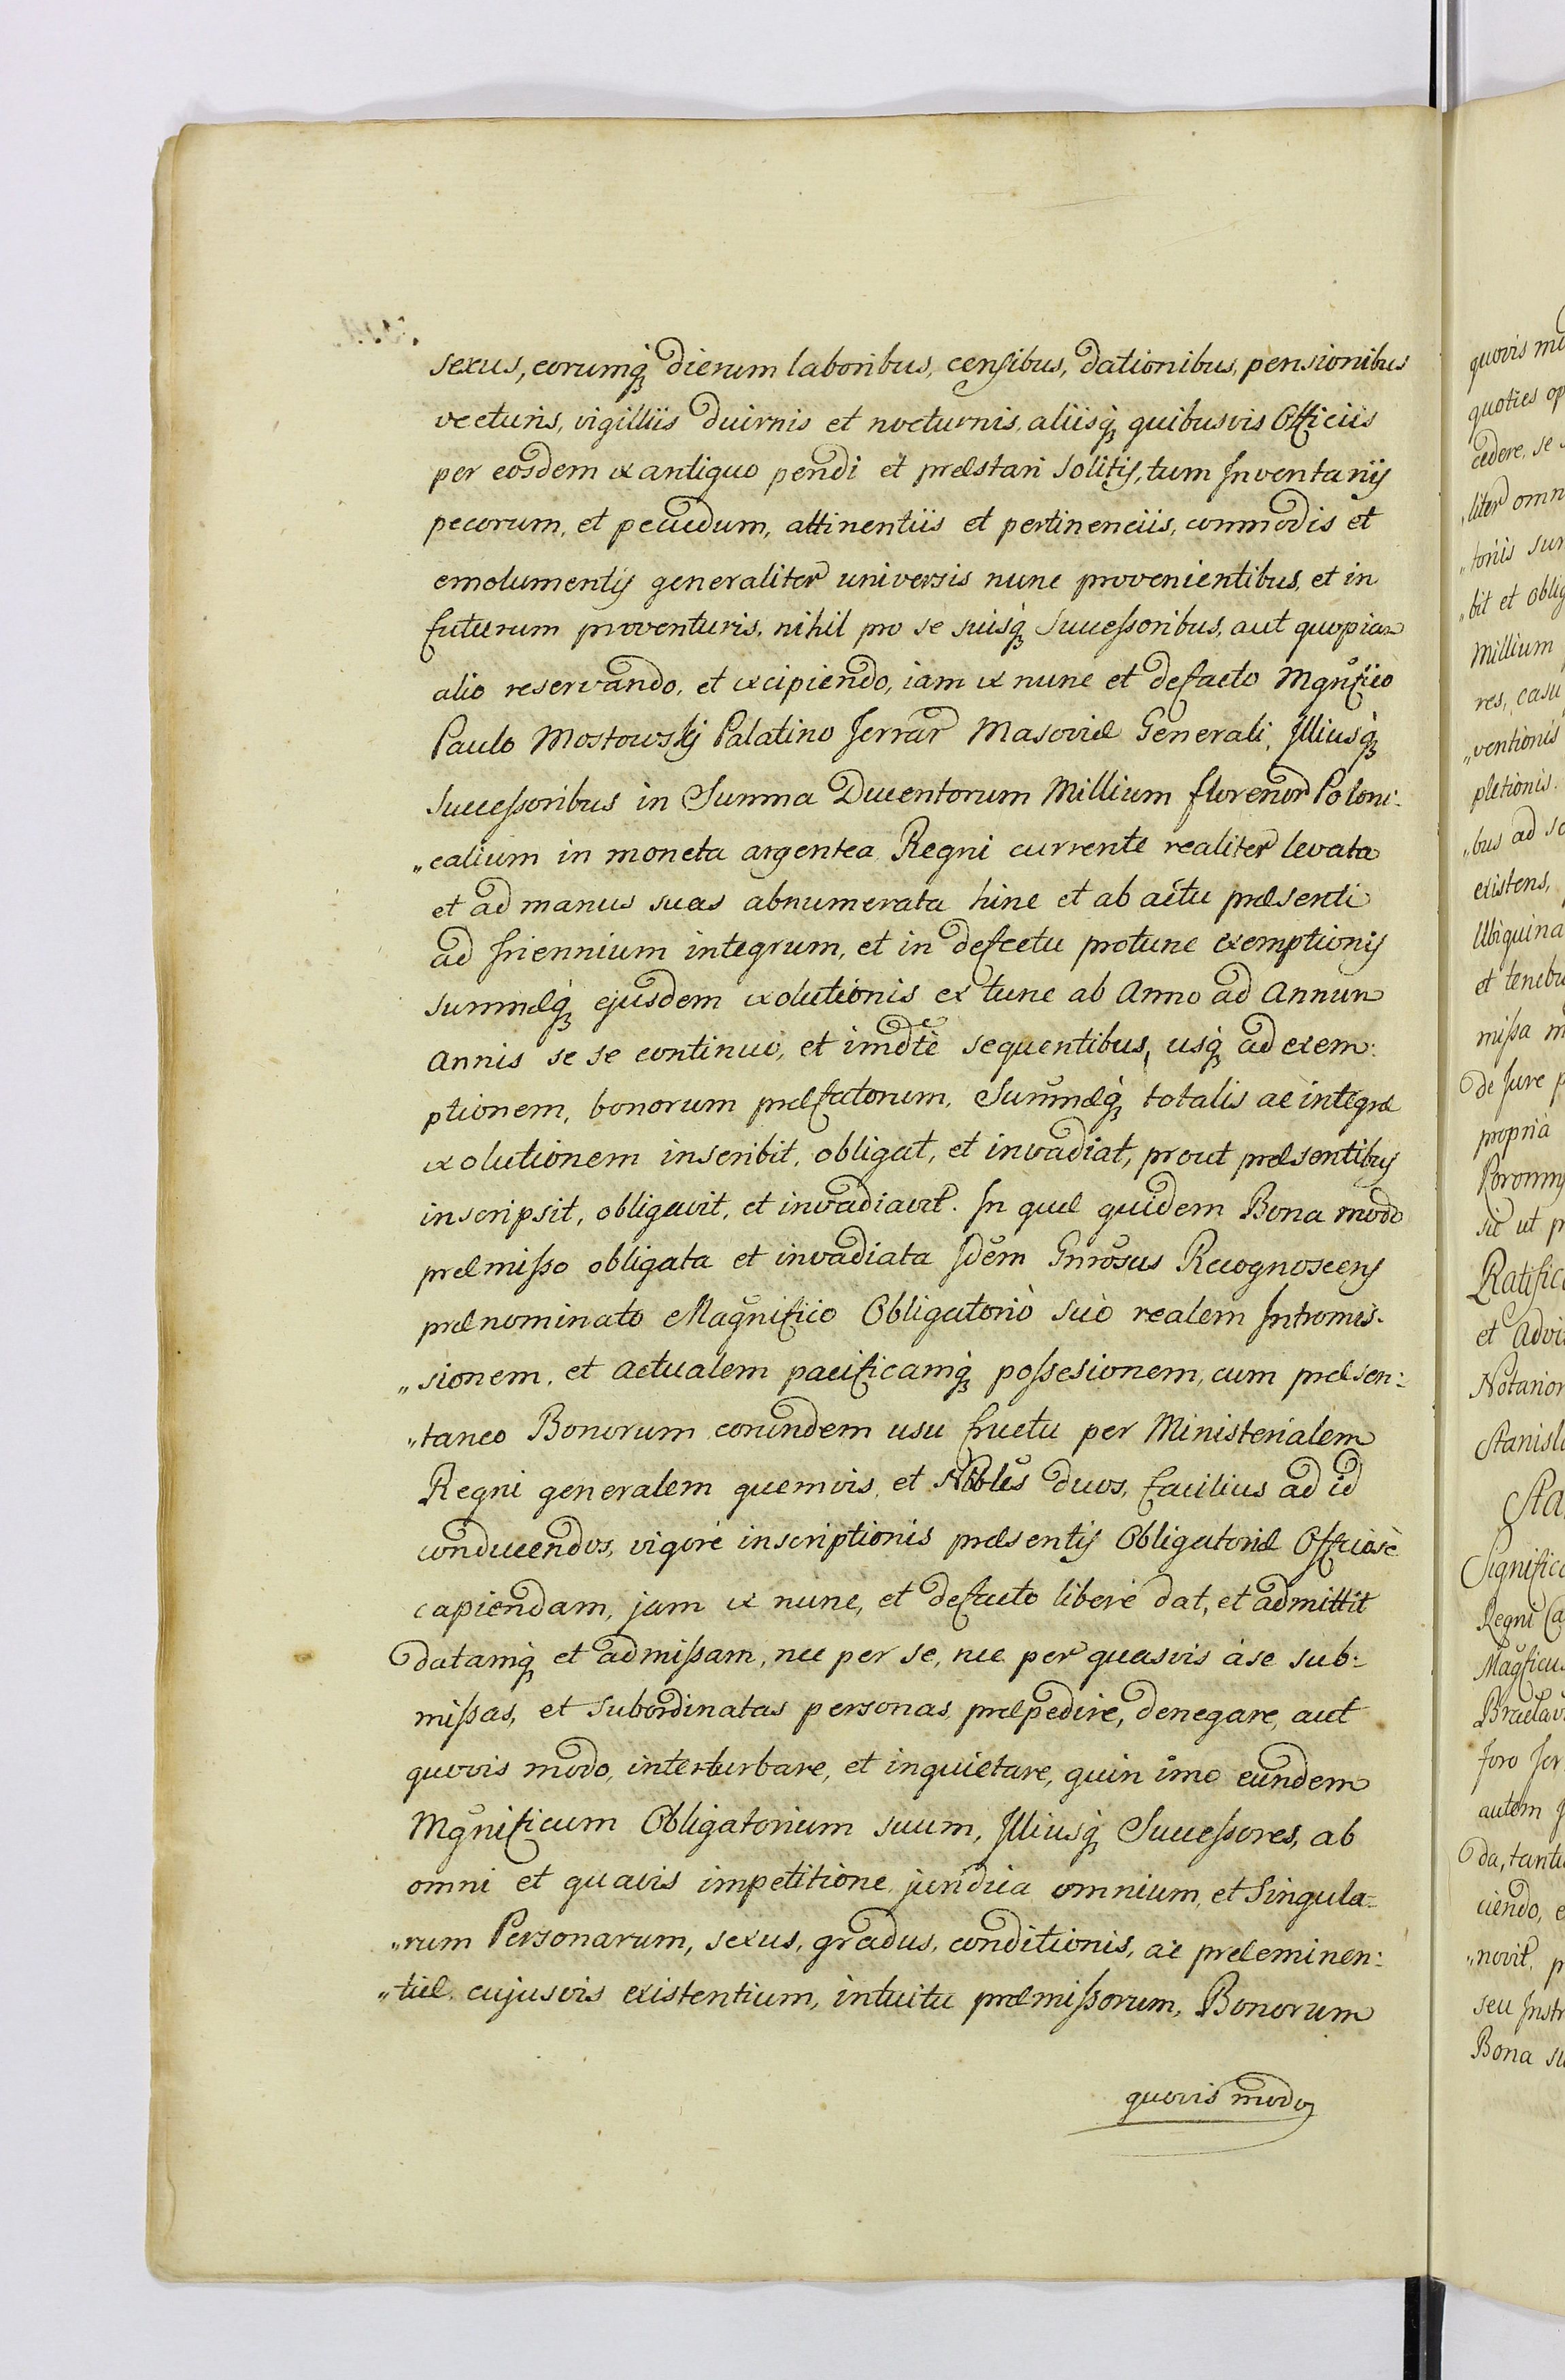 sexus, eorumq́ dierum laboribus, censibus, dationibus, pensionibus
vecturis, vigilliis duirnis et nocturnis, aliisq́ quibusvis Officiis
per eosdem ex antiquo pendi et præstari solitis, tum Inventariis
pecorum, et pecudum, attinentiis et pertinenciis, commodis et
emolumentis generaliter universis nunc provenientibus, et in
futurum proventuris, nihil pro se suisq́ Successoribus, aut quopiam
alio reservando, et excipiendo, iam ex nunc et defacto Mgnfico
Paulo Mostowskij Palatino Terrar Masoviæ Generali, Illiusq́
Successoribus in Summa Ducentorum Millium florenor Poloni-
„calium in moneta argentea Regni currente realiter levata
et ad manus suas abnumerata hinc et ab actu præsenti
ad triennium integrum, et in defectu protunc exemptionis
summæq́ ejusdem exolutionis ex tunc ab Anno ad Annum
Annis se se continuo, et imdte sequentibus, usq́ ad exem:
ptionem, bonorum præfatorum, Summæq́ totalis ac integræ
exolutionem inscribit, obligat, et invadiat, prout præsentibus
inscripsit, obligavit, et invadiavit. In quæ quidem Bona modo
præmisso obligata et invadiata Idem Gnrosus Recognoscens
prænominato Magnifico Obligatorio suo realem Intromis-
„sionem, et actualem pacificamq́ possesionem, cum præsen:
„taneo Bonorum eorundem usu fructu per Ministerialem
Regni generalem quemvis, et Nobles duos, facilius ad id
conducendos, vigore inscriptionis præsentis Obligatoriæ Officiosè
capiendam, jam ex nunc, et defacto liberè dat, et admittit
datamq́ et admissam, nec per se, nec per quasvis à se sub-
missas, et subordinatas personas, præpedire, denegare, aut
quovis modo, interturbare, et inquietare, quin imo eundem
Mgnificum Obligatorium suum, Illiusq́ Successores, ab
omni et quavis impetitione juridica omnium, et Singula-
„rum Personarum, sexus, gradus, conditionis, ac præeminen:
„tiæ cujusvis existentium, intuitu præmissorum, Bonorum
quovis modo
quovis mo
quoties op
cedere, se
„liter omn
„toriis sum
„bit et oblig
Millium
res, casu
„ventionis
pletionis.
„bus ad
existens,
Ubiquina
et tenebu
missa m
de Jure p
propriâ
sic ut p
Ratific
et Advi
Notarior
Stanisla
Sta
Significa
Regni Ca
Magficus
Braclav
foro ter
autem
da, tantu
ciendo, e
„novit, p
seu Instr
Bona su